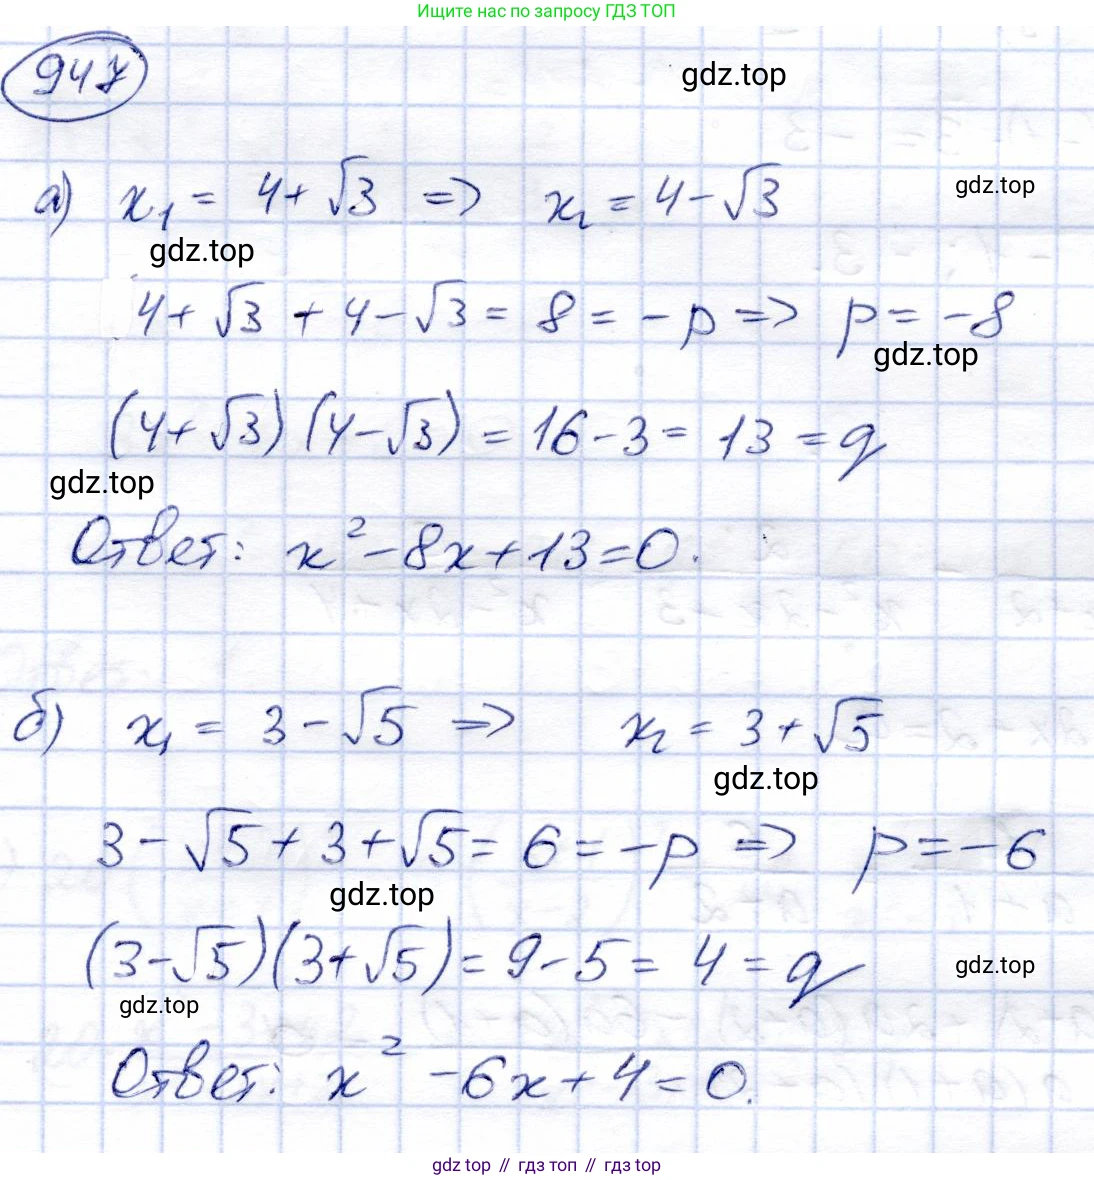 Ищите нас по запросу ГДЗ ТОП
947
gdz.top
а) x₁ = 4+√3 => x₂ = 4-√3
gdz.top
gdz.top
4+√3 + 4-√3 = 8 = -p => p = -8
gdz.top
(4+√3)(4-√3) = 16-3 = 13 = q
gdz.top
Ответ: x²-8x+13=0.
б) x₁ = 3-√5 => x₂ = 3+√5
gdz.top
3-√5+3+√5 = 6 = -p => p = -6
gdz.top
(3-√5)(3+√5) = 9-5 = 4 = q
gdz.top
gdz.top
Ответ: x² -6x+4=0.
gdz.top // гдз топ // гдз top